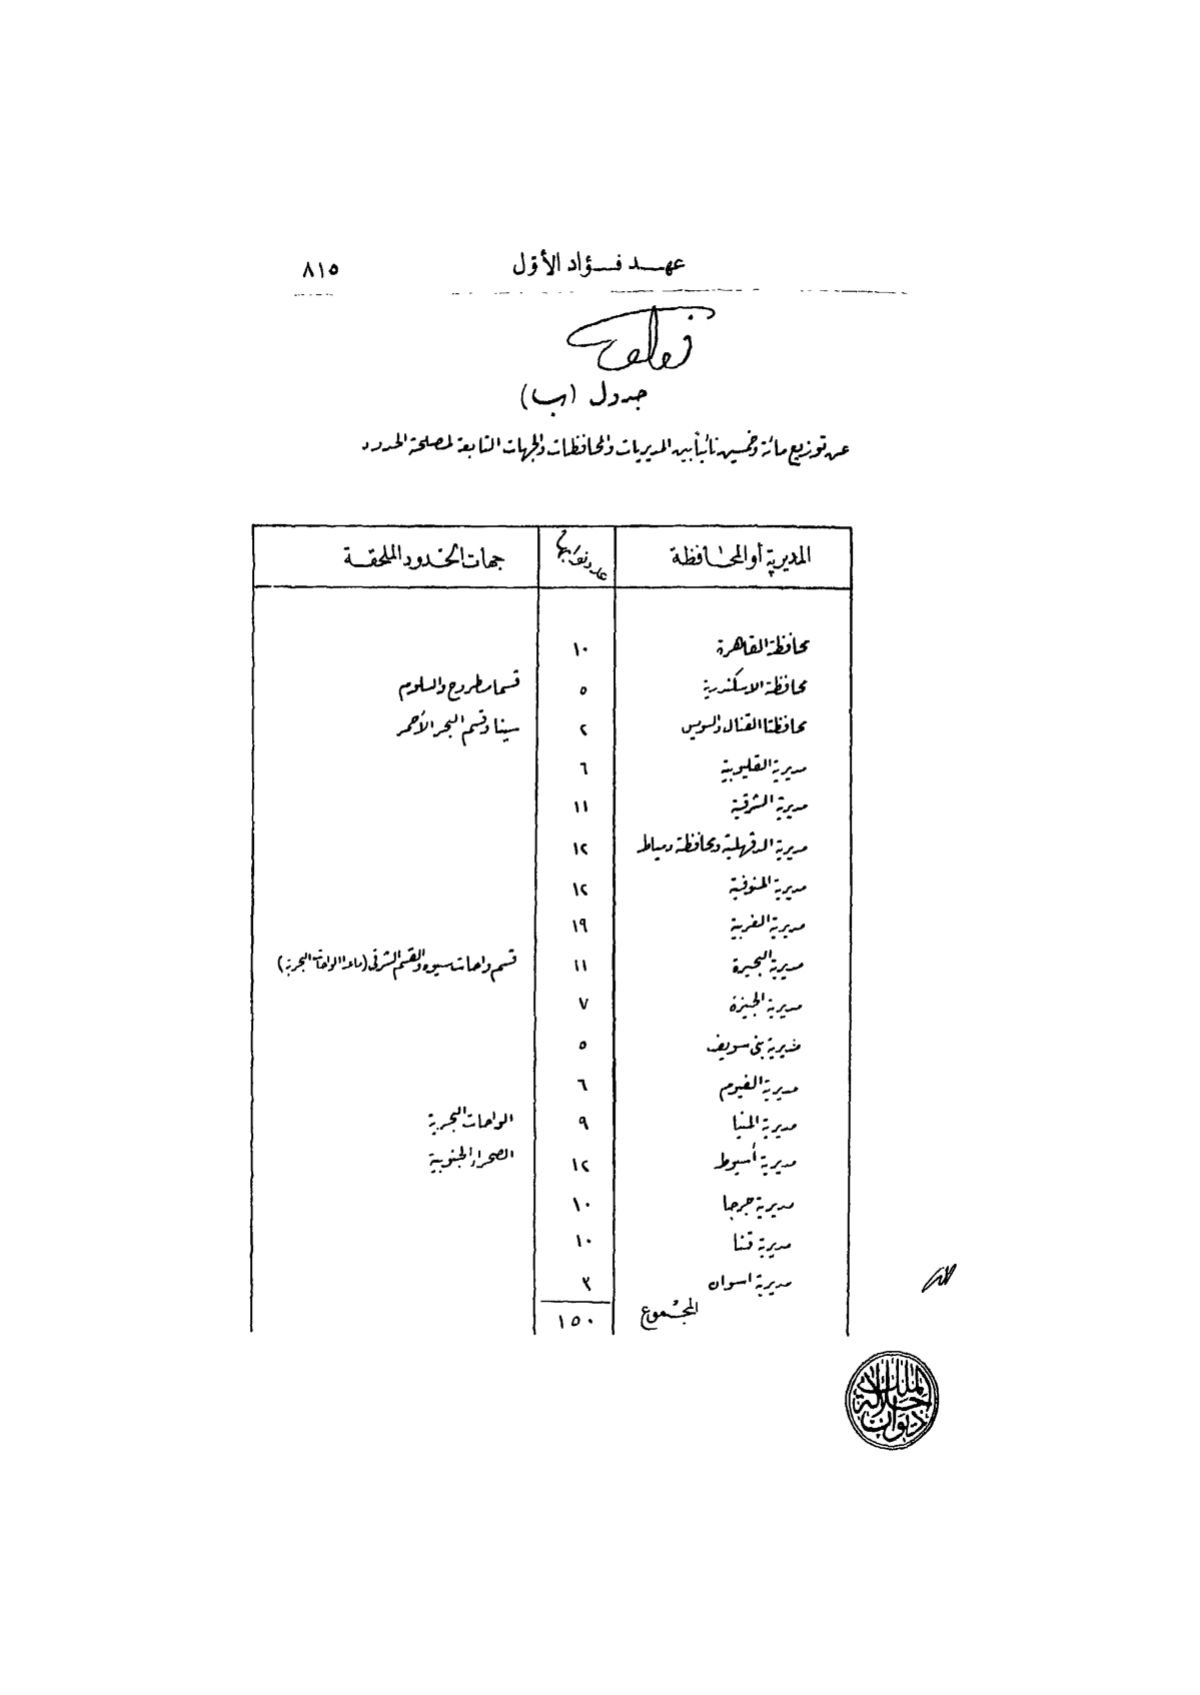 عهد فؤاد الأول ٨١٥
جدول (ب)
عن توزيع مائة وخمسين نائباً بين المديريات والمحافظات والجهات التابعة لمصلحة الحدود
المديرية أو المحافظة عدد نوابها جهات الحدود الملحقة
محافظة القاهرة ١٠
محافظة الاسكندرية ٥ قسما مطروح والسلوم
محافظتا القنال والسويس ٢ سينا وقسم البحر الأحمر
مديرية القليوبية ٦
مديرية الشرقية ١١
مديرية الدقهلية ومحافظة دمياط ١٢
مديرية المنوفية ١٢
مديرية الغربية ١٩
مديرية البحيرة ١١ قسم واحات سيوه والقسم الشرقى (ماعدا الواحات البحرية)
مديرية الجيزة ٧
مديرية بنى سويف ٥
مديرية الفيوم ٦
مديرية المنيا ٩ الواحات البحرية
مديرية أسيوط ١٢ الصحراء الجنوبية
مديرية جرجا ١٠
مديرية قنا ١٠
مديرية اسوان ٣
المجموع ١٥٠
ديوان جلالة الملك